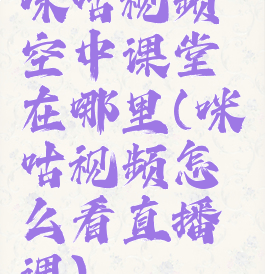 咪咕视频
空中课堂
在哪里(咪
咕视频怎
么看直播
课)